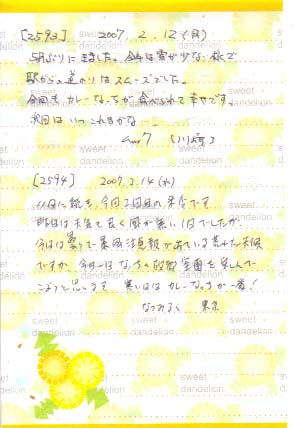 [2593] 2007. 2. 12 (月)
5月ぶりに来ました。今年は雪が少ない様で
駅からの道のりはスムーズでした。
今回もカレーなっちが食べられて幸せです。
次回はいつこれるかな…
(川崎)
[2594] 2007. 2. 14 (水)
11日に続き、今回2回目の来店です
昨日は天気も良く風が無い1日でしたが、
今日は曇って暴風注意報が出ている荒れた天候
ですが、今日一日なっちの故郷室蘭を楽しんで
こようと思います。寒い日はカレーなっちが一番!
東京
sweet dandelion
sweet dandelion
sweet dandelion
sweet dandelion